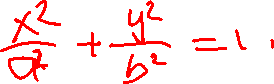 \frac{x^2}{a^2} + \frac{y^2}{b^2} = 1.